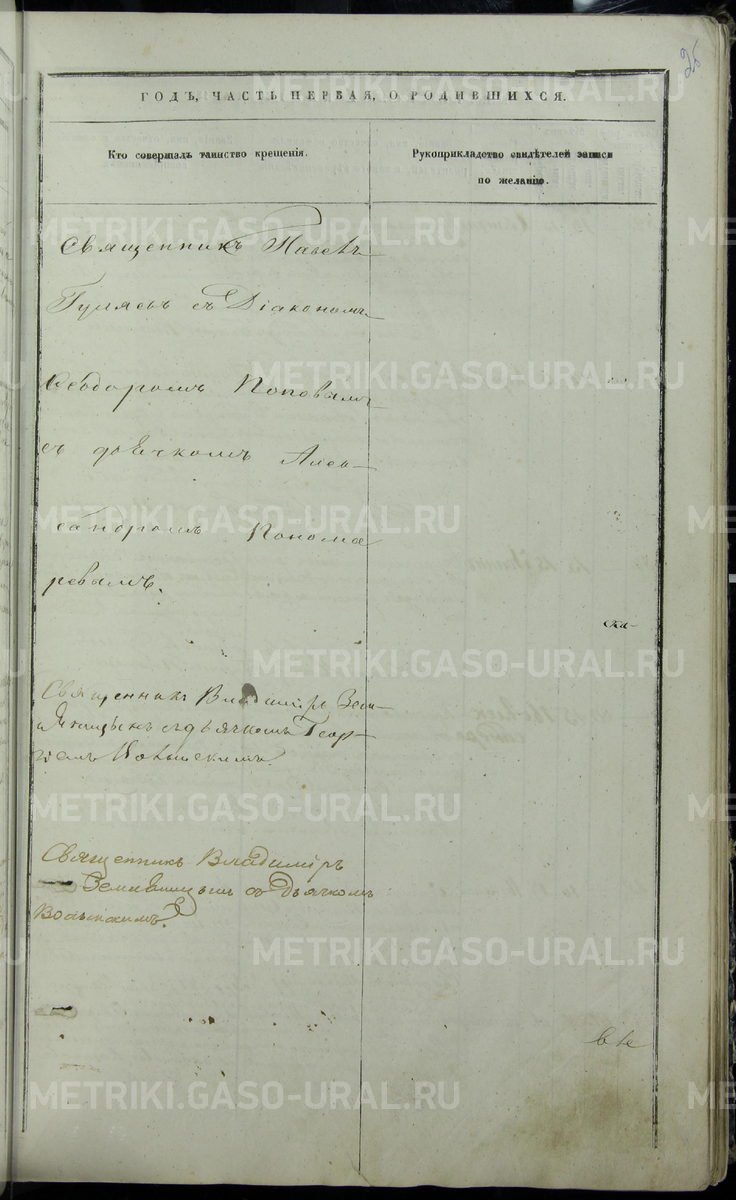 25
ГОДЪ, ЧАСТЬ ПЕРВАЯ, О РОДИВШИХСЯ.
Кто совершалъ таинство крещенія.
Рукоприкладство свидѣтелей записи
по желанію.
Священникъ Павелъ
Гуляевъ съ Діакономъ
Ѳеодоромъ Поповымъ
съ дьячкомъ Алек-
сандромъ Понома
ревымъ.
ска-
Священникъ Владиміръ Зем-
съ дьячкомъ Геор-
гіемъ
Священникъ Владиміръ
съ Дьячкомъ
Волынскимъ
METRIKI.GASO-URAL.RU